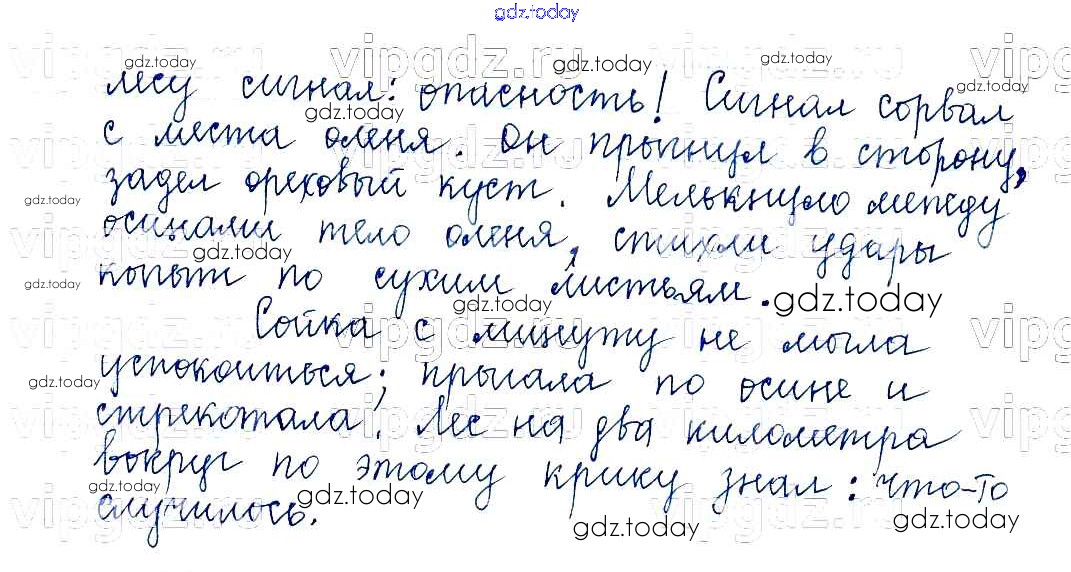 gdz.today
лесу сигнал: опасность! Сигнал сорвал
с места оленя. Он прыгнул в сторону,
задел ореховый куст. Мелькнуло между
осинами тело оленя, стихли удары
копыт по сухим листьям.
Сойка с минуту не могла
успокоиться; прыгала по осине и
стрекотала. Лес на два километра
вокруг по этому крику знал: что-то
случилось.